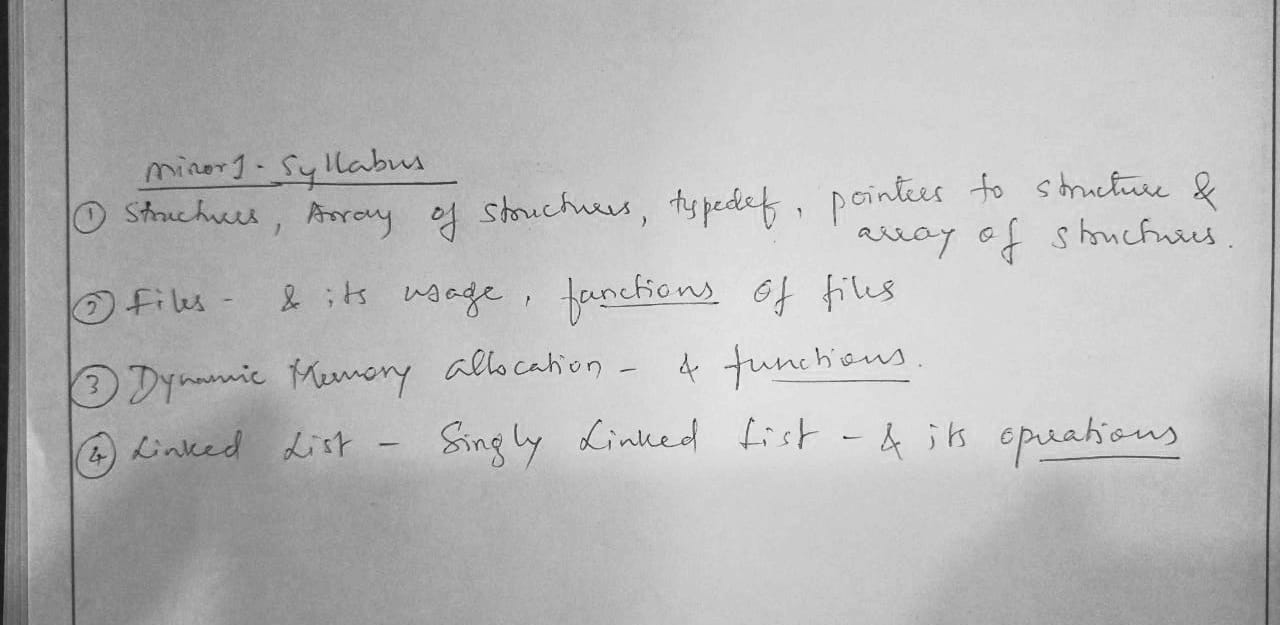 minor1 - Syllabus
① Structures, Array of structures, typedef, pointers to structure &
array of structures.
② Files - & its usage, functions of files
③ Dynamic Memory allocation - & functions.
④ Linked List - Singly Linked List - & its operations